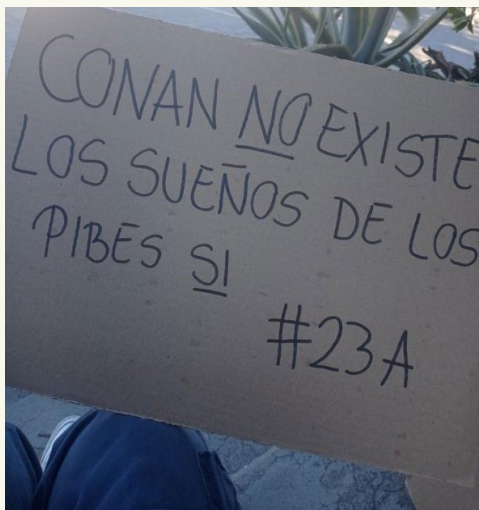 CONAN NO EXISTE
LOS SUEÑOS DE LOS
PIBES SI
#23A